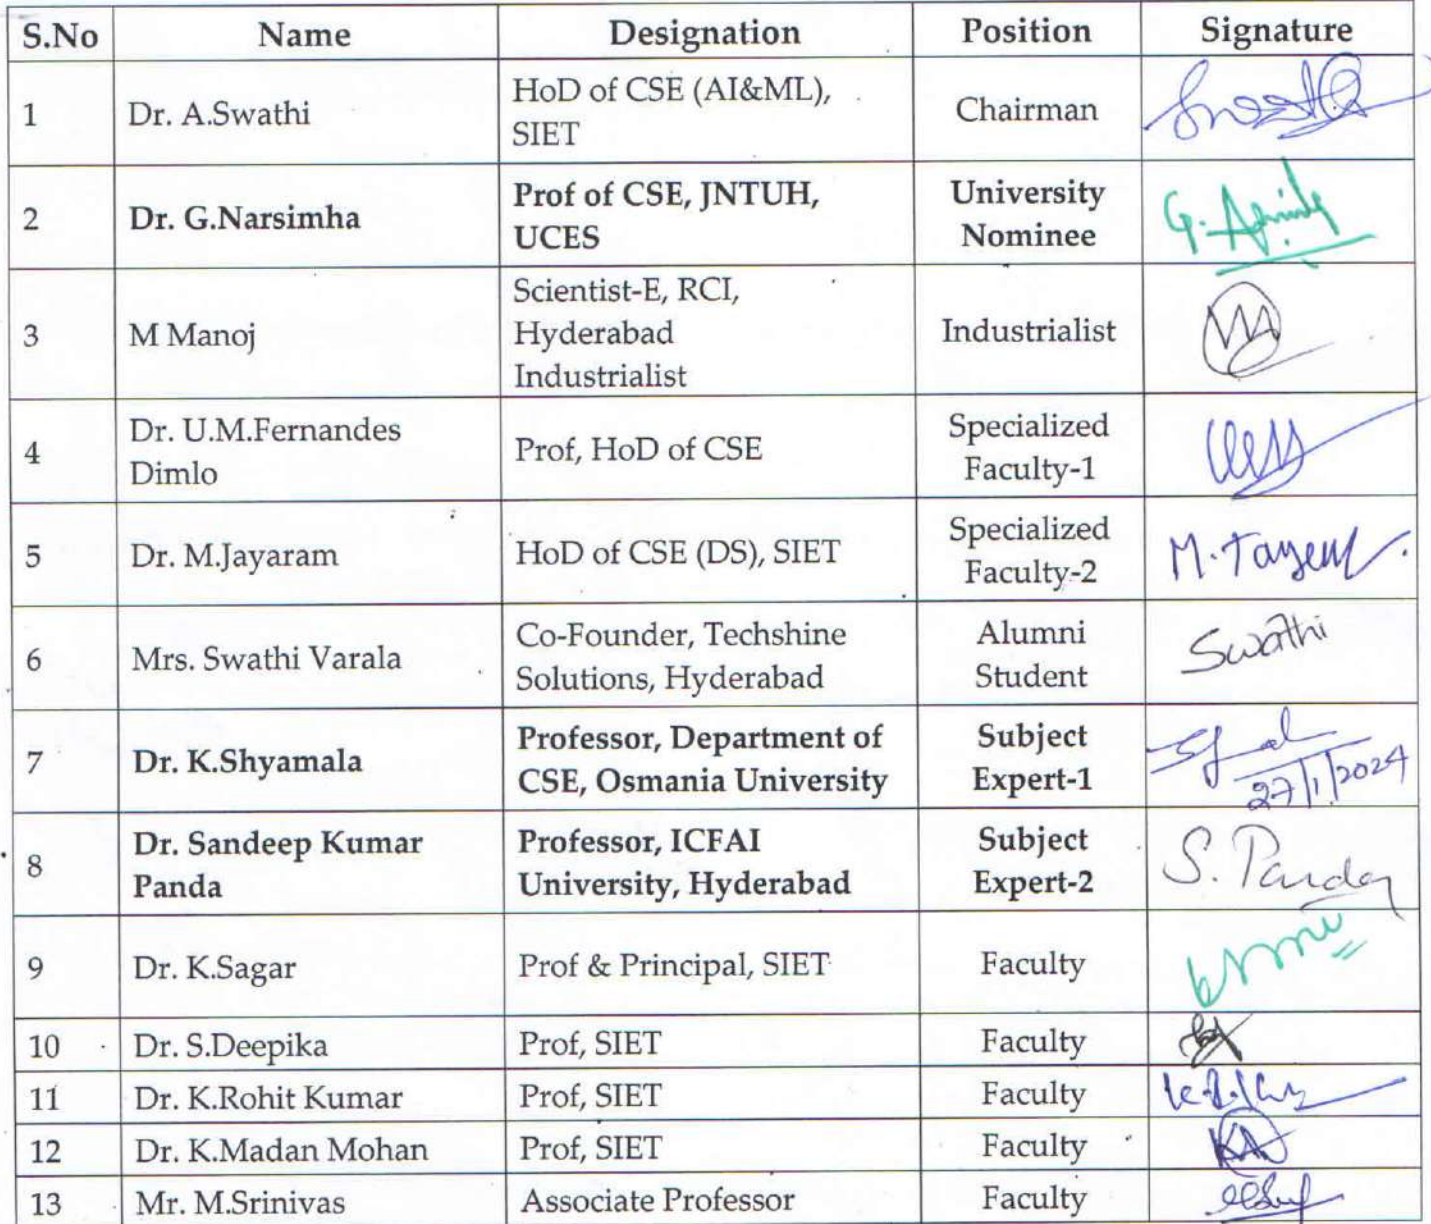 S.No Name Designation Position Signature
1 Dr. A.Swathi HoD of CSE (AI&ML), SIET Chairman
2 Dr. G.Narsimha Prof of CSE, JNTUH, UCES University Nominee G.
3 M Manoj Scientist-E, RCI, Hyderabad Industrialist Industrialist
4 Dr. U.M.Fernandes Dimlo Prof, HoD of CSE Specialized Faculty-1
5 Dr. M.Jayaram HoD of CSE (DS), SIET Specialized Faculty-2 M.
6 Mrs. Swathi Varala Co-Founder, Techshine Solutions, Hyderabad Alumni Student Swathi
7 Dr. K.Shyamala Professor, Department of CSE, Osmania University Subject Expert-1 27/1/2024
8 Dr. Sandeep Kumar Panda Professor, ICFAI University, Hyderabad Subject Expert-2 S. Panda
9 Dr. K.Sagar Prof & Principal, SIET Faculty
10 Dr. S.Deepika Prof, SIET Faculty
11 Dr. K.Rohit Kumar Prof, SIET Faculty
12 Dr. K.Madan Mohan Prof, SIET Faculty
13 Mr. M.Srinivas Associate Professor Faculty